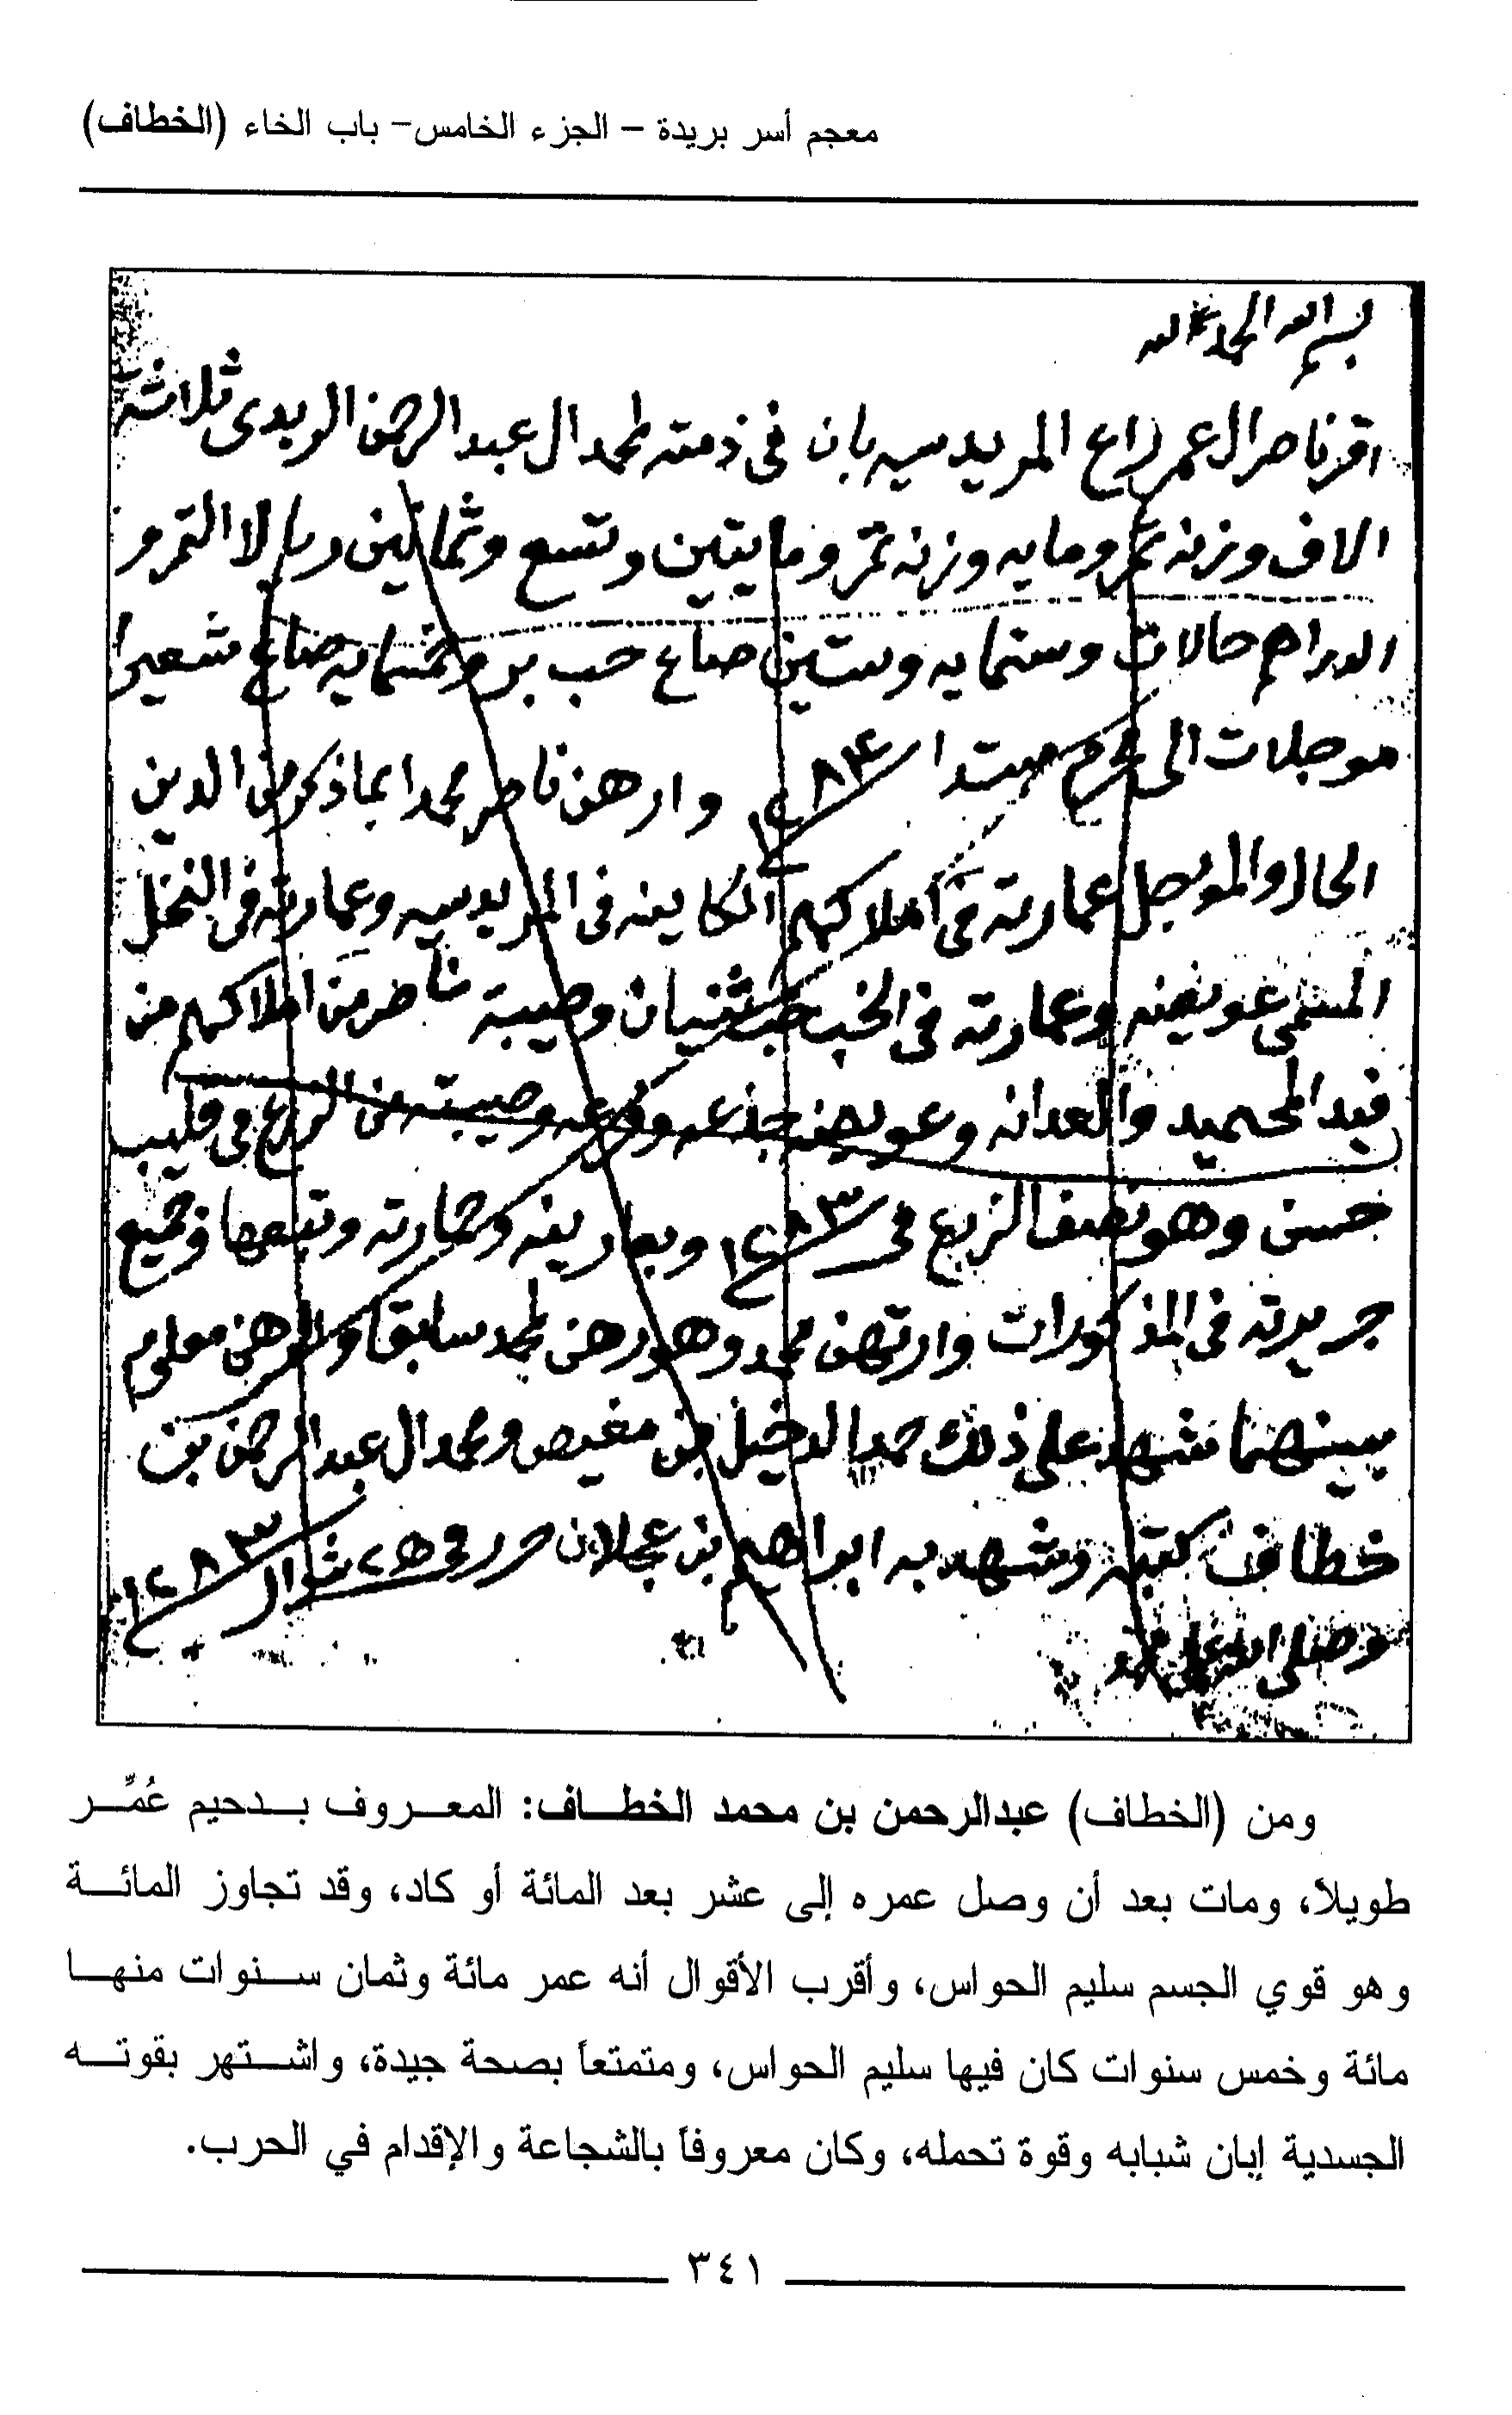 معجم أسر بريدة – الجزء الخامس– باب الخاء (الخطاف)
بسم الله الحمد لله
اقر ناصر ال عمر راع المريدسيه بان في ذمته لمحمد ال عبد الرحمن الربدى ثلاثة
الاف وزنه تمر ومايه وزنه تمر ومايتين وتسع وثمانين ريالا التمر و
الدراهم حالات وستمايه وستين صاع حب بر وخمسمايه صاع شعير
موجلات الى محرم مبتدا ١٢٨٤ وارهن ناصر محمد ابما ذكر من الدين
الحال والموجل عمارته في املاكهم الكاينه في المريدسيه وعمارته في النخل
المسمى عويضه وعمارته في الخب خب ثنيان وصيبة ناصر من املاكهم من
فيد المحيميد والعدانه وعويضه جذعه وفرعه وصيبته من الزرع في قليب
حسن وهو نصف الزرع في ١٢٨٣ وبعارينه وحمارته وتبعها وجميع
جريرته في المذكورات وارتهن محمد وهو رهن لمحمد سابقا والرهن معلوم
بينهما شهد على ذلك حمد الدخيل بن مغيص ومحمد ال عبد الرحمن بن
خطاف كتبه وشهد به ابراهيم بن عجلان حرر في ٢٥ شوال ١٢٨٣
وصلى الله على محمد
ومن (الخطاف) عبدالرحمن بن محمد الخطاف: المعروف بدحيم عُمِّر
طويلاً، ومات بعد أن وصل عمره إلى عشر بعد المائة أو كاد، وقد تجاوز المائة
وهو قوي الجسم سليم الحواس، وأقرب الأقوال أنه عمر مائة وثمان سنوات منها
مائة وخمس سنوات كان فيها سليم الحواس، ومتمتعاً بصحة جيدة، واشتهر بقوته
الجسدية إبان شبابه وقوة تحمله، وكان معروفاً بالشجاعة والإقدام في الحرب.
٣٤١